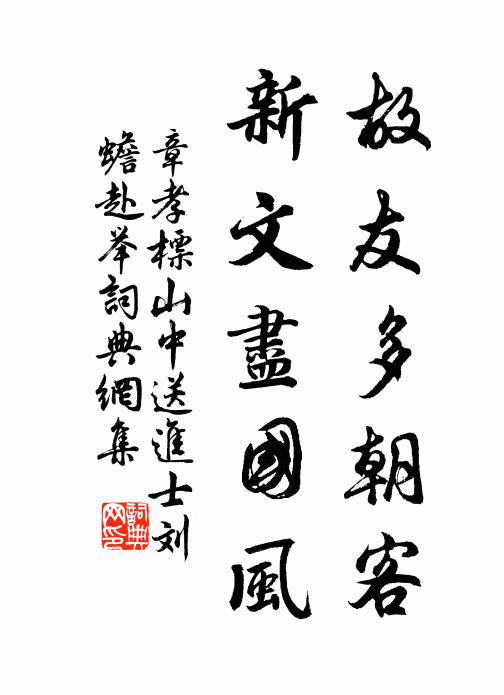 故友多朝客
新文盡國風
章孝標山中送進士刘
蟾赴举詞典網集
詞典网印